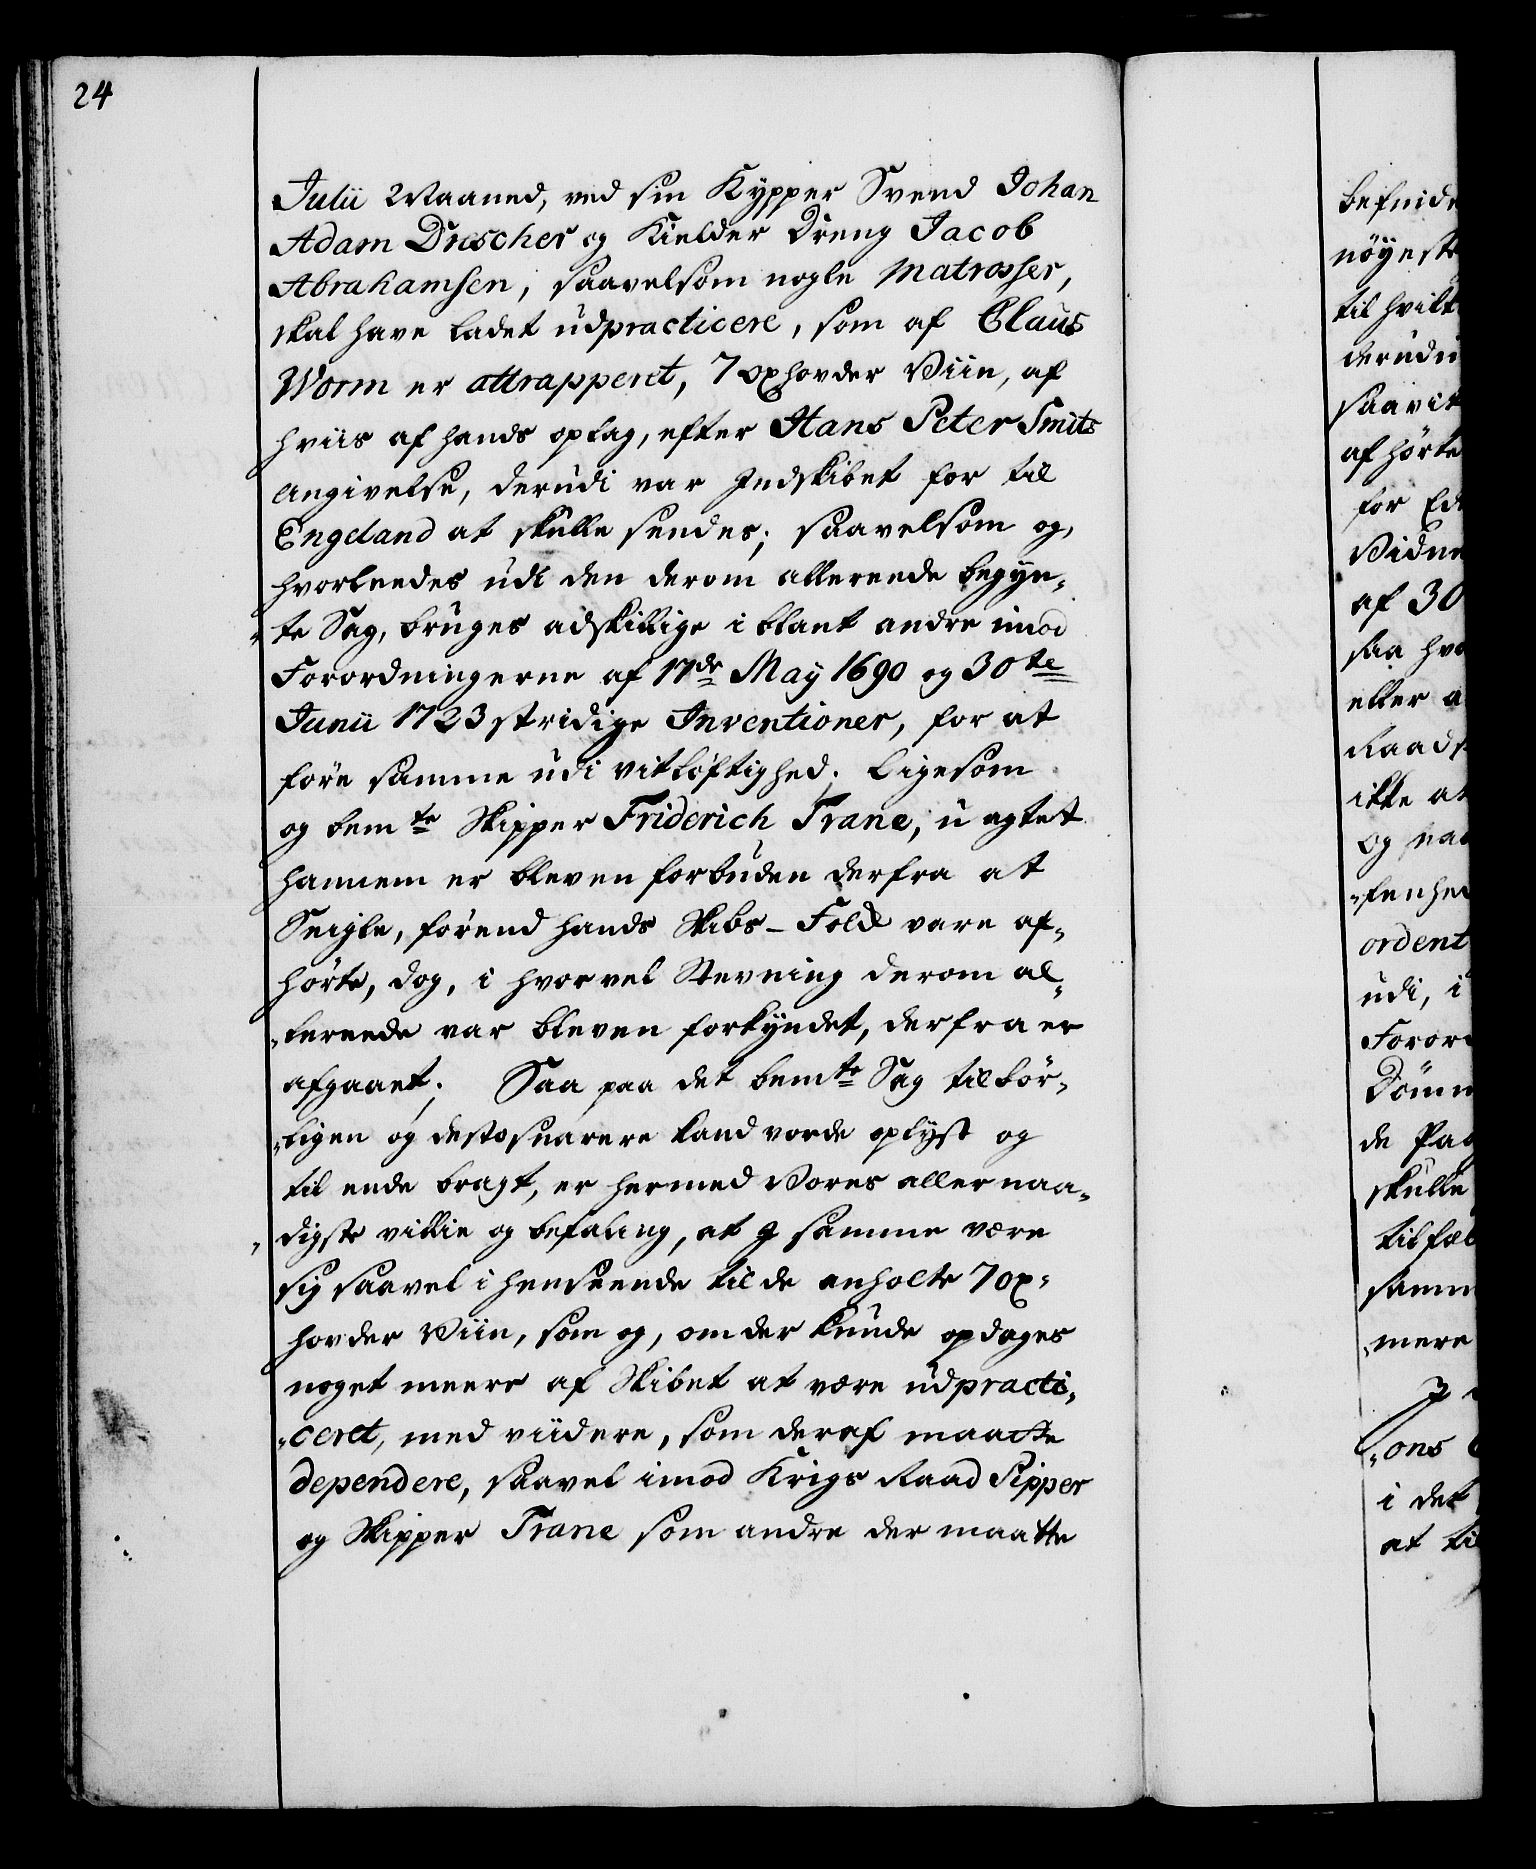 24
Julii Maaned, ved sin Kypper Svend Johan
Adam Drescher og Kielder Dreng Jacob
Abrahamsen, saavelsom nogle Matrosser,
skal have ladet udpracticere, som af Claus
Worm er attrapperet, 7 oxhovder Viin, af
hviis af hands oplag, efter Hans Peter Smits
angivelse, derudi var Indskibet for til
Engeland at skulle sendes; saavelsom og,
hvorleedes udi den derom allereede begyn„
„te Sag, bruges adskillige iblant andre imod
Forordningerne af 17de May 1690 og 30te
Junii 1723 stridige Inventioner, for at
före samme udi vitlöftighed. Ligesom
og bemte Skipper Friderich Trane, u agtet
hannem er bleven forbuden derfra at
Seigle, förend hands Skibs-Folk vare af„
hörte, dog, i hvorvel Stevning derom al„
„lereede var bleven forkyndet, derfra er
afgaaet; Saa paa det bemte Sag tilbör„
„ligen og desto snarere kand vorde oplyst og
til ende bragt, er hermed Vores allernaa„
„digste villie og befaling, at I samme være
sig saavel i henseende til de anholte 7 ox„
hovder Viin, som og, om der kunde opdages
noget meere af Skibet at være udpracti„
„ceret, med viidere, som deraf maatte
dependere, saavel imod Krigs Raad Pipper
og Skipper Trane som andre der maatte
befinde
nöyeste
til hvilk
derudi
saavit
afhörte
for Ed
Vidne
af 30
saa hvo
eller a
Raads
ikke at
og
„fenhed
ordent
udi, i
Foror
Dömm
de Paa
skulle
tilfæl
samm
„mere
I
„ons
i det
at til